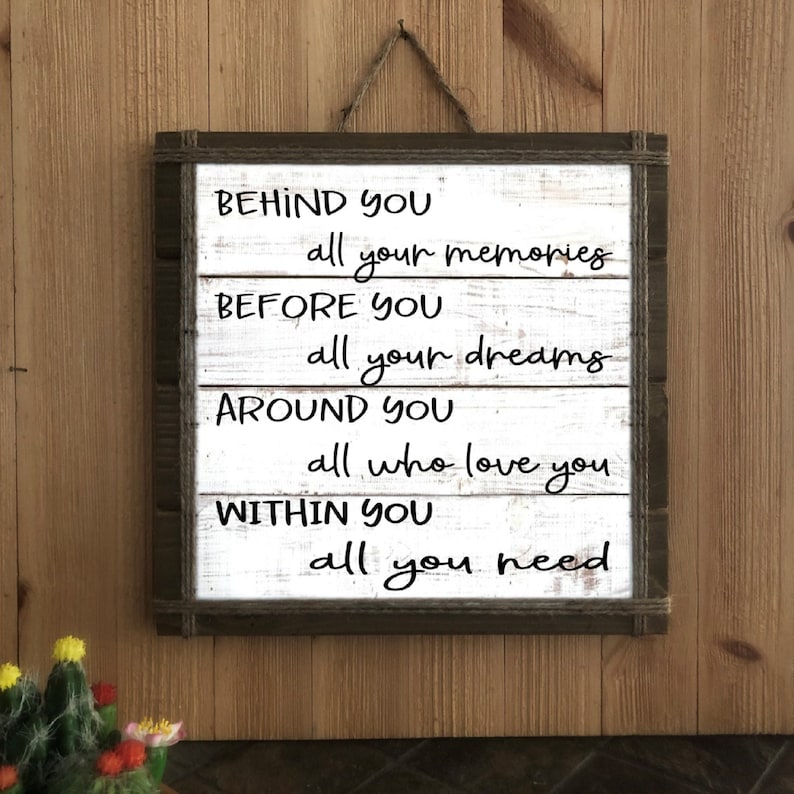 BEHiND YOU
all your memories
BEFORE YOU
all your dreams
AROUND YOU
all who love you
WITHIN YOU
all you need